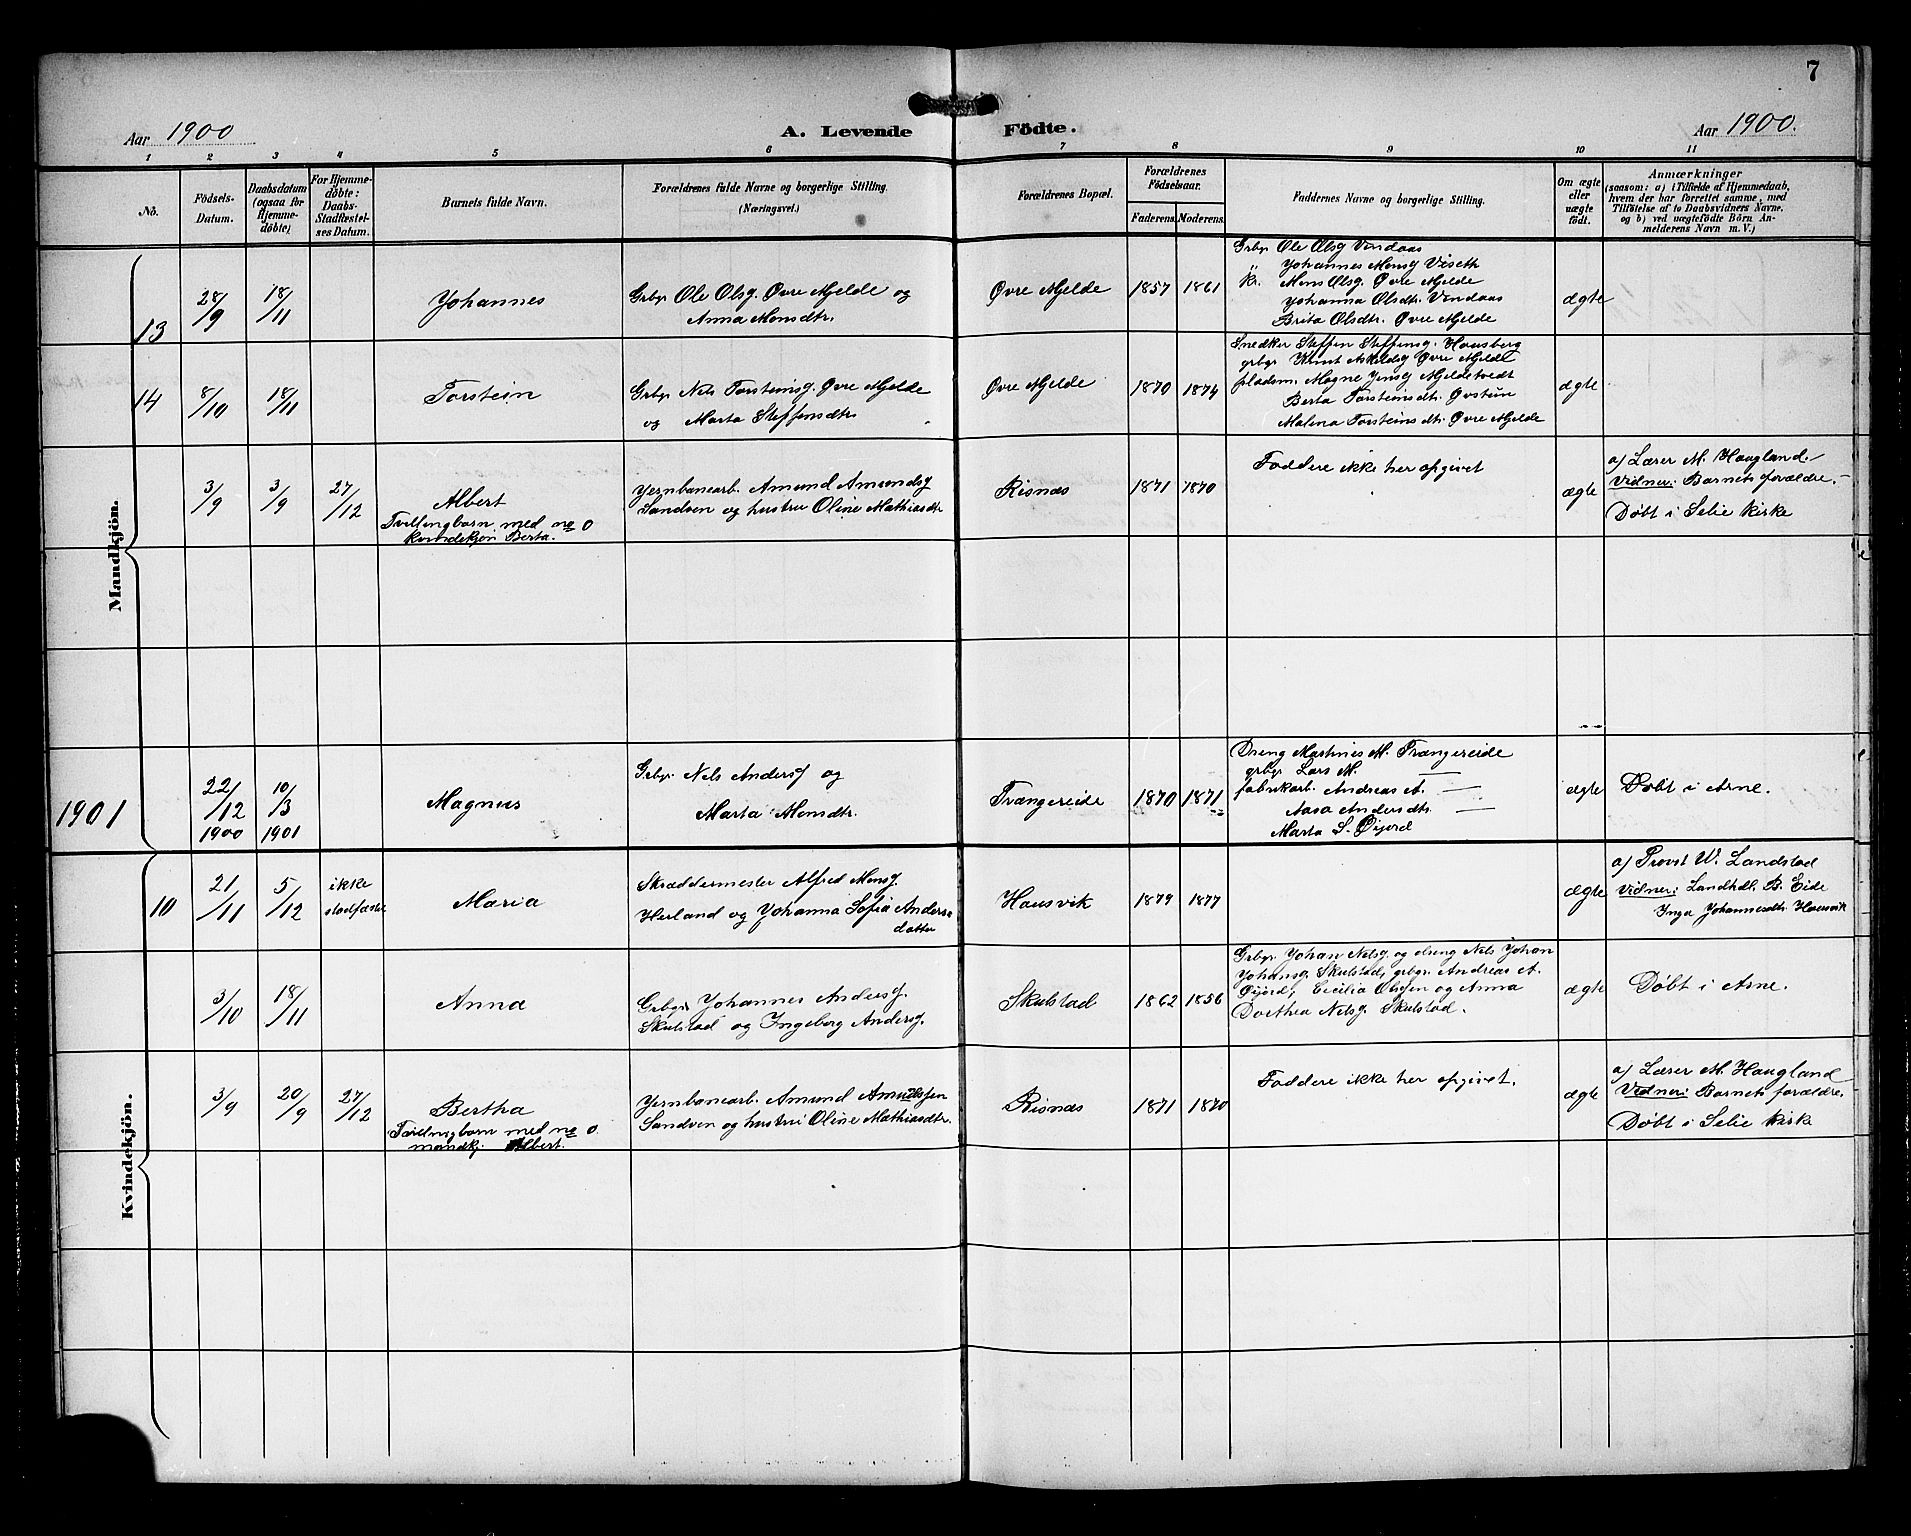 7
Aar 1900
A. Levende Födte.
Aar 1900.
1 2 3 4 5 6 7 8 9 10 11
No.
Födsels-
Datum.
Daabsdatum
(ogsaa for
Hjemme-
döbte)
For Hjemme-
döbte:
Daabs-
Stadfæstel-
ses Datum.
Barnets fulde Navn.
Forældrenes fulde Navne og borgerlige Stilling.
(Næringsvei.)
Forældrenes Bopæl.
Forældrenes
Födselsaar.
Faderens. Moderens.
Faddernes Navne og borgerlige Stilling.
Om ægte
eller
uægte
födt.
Anmærkninger
(saasom: a) i Tilfælde af Hjemmedaab,
hvem der har forrettet samme, med
Tilföielse af to Daabsvidners Navne,
og b) ved uægtefödte Börn An-
melderens Navn m. V.)
Mandkjön.
13
28/9
18/11
Johannes
Grbr. Ole Olsg. Øvre Mjelde og
Anna Monsdtr.
Øvre Mjelde
1857 1861
Grbr Ole Olsg Vindaas
Johannes Monsg Viseth
Mons Olsg. Øvre Mjelde
Johanna Olsdtr. Vindaas
Brita Olsdtr. Øvre Mjelde
ægte
14
8/10
18/11
Torstein
Grbr. Nels Torsteinsg. Øvre Mjelde
og Marta Steffensdtr
Øvre Mjelde
1870 1874
Snedker Steffen Steffensg. Hausberg
grbr Knut Askeldsg Øvre Mjelde
pladsm. Magne Jensg Mjeldetvedt
Berta Torsteinsdtr. Øvstun
Malena Torsteinsdtr. Øvre Mjelde
ægte
3/9
3/9
27/12
Albert
Tvillingbarn med no 0
kvindekjøn Berta.
Jernbanearb. Amund Amundsg
Sandven og hustru Oline Mathiasdtr
Risnæs
1871 1870
Faddere ikke her opgivet
ægte
a) Lærer M. Haugland.
Vidner: Barnets forældre.
Døbt i Selie kirke
1901
22/12
1900
10/3
1901
Magnus
Grbr. Nels Andersg og
Marta Monsdtr.
Trængereide
1870 1871
Dreng Martines M. Trængereide
grbr Lars M. —
fabrikarb. Andreas A. —
Aasa Andersdtr. —
Marta S. Øijord
ægte
Døbt i Arne.
Kvindekjön.
10
21/11
5/12
ikke
stadfæstet
Maria
Skræddermester Alfred Monsg.
Herland og Johanna Sofia Anders
datter
Hausvik
1879 1877
ægte
a) Provst W. Landstad
Vidner: Landhdl. B. Eide
Inga Johannesdtr. Hausvik
3/10
18/11
Anna
Grbr Johannes Andersg.
Skulstad og Ingeborg Andersg.
Skulstad
1862 1856
Grbr. Johan Nelsg. og dreng Nels Johan
Johansg. Skulstad, grbr. Andreas A.
Øijord, Cecilia Olsgen og Anna
Dorthea Nelsg. Skulstad.
ægte
Døbt i Arne.
3/9
20/9
27/12
Bertha
Tvillingbarn med no 0
mandkj. Albert.
Jernbanearb. Amund Amundsgen
Sandven og hustru Oline Mathiasdtr.
Risnæs
1871 1870
Faddere ikke her opgivet.
ægte
a) Lærer M. Haugland
Vidner: Barnets forældre.
Døbt i Selie kirke